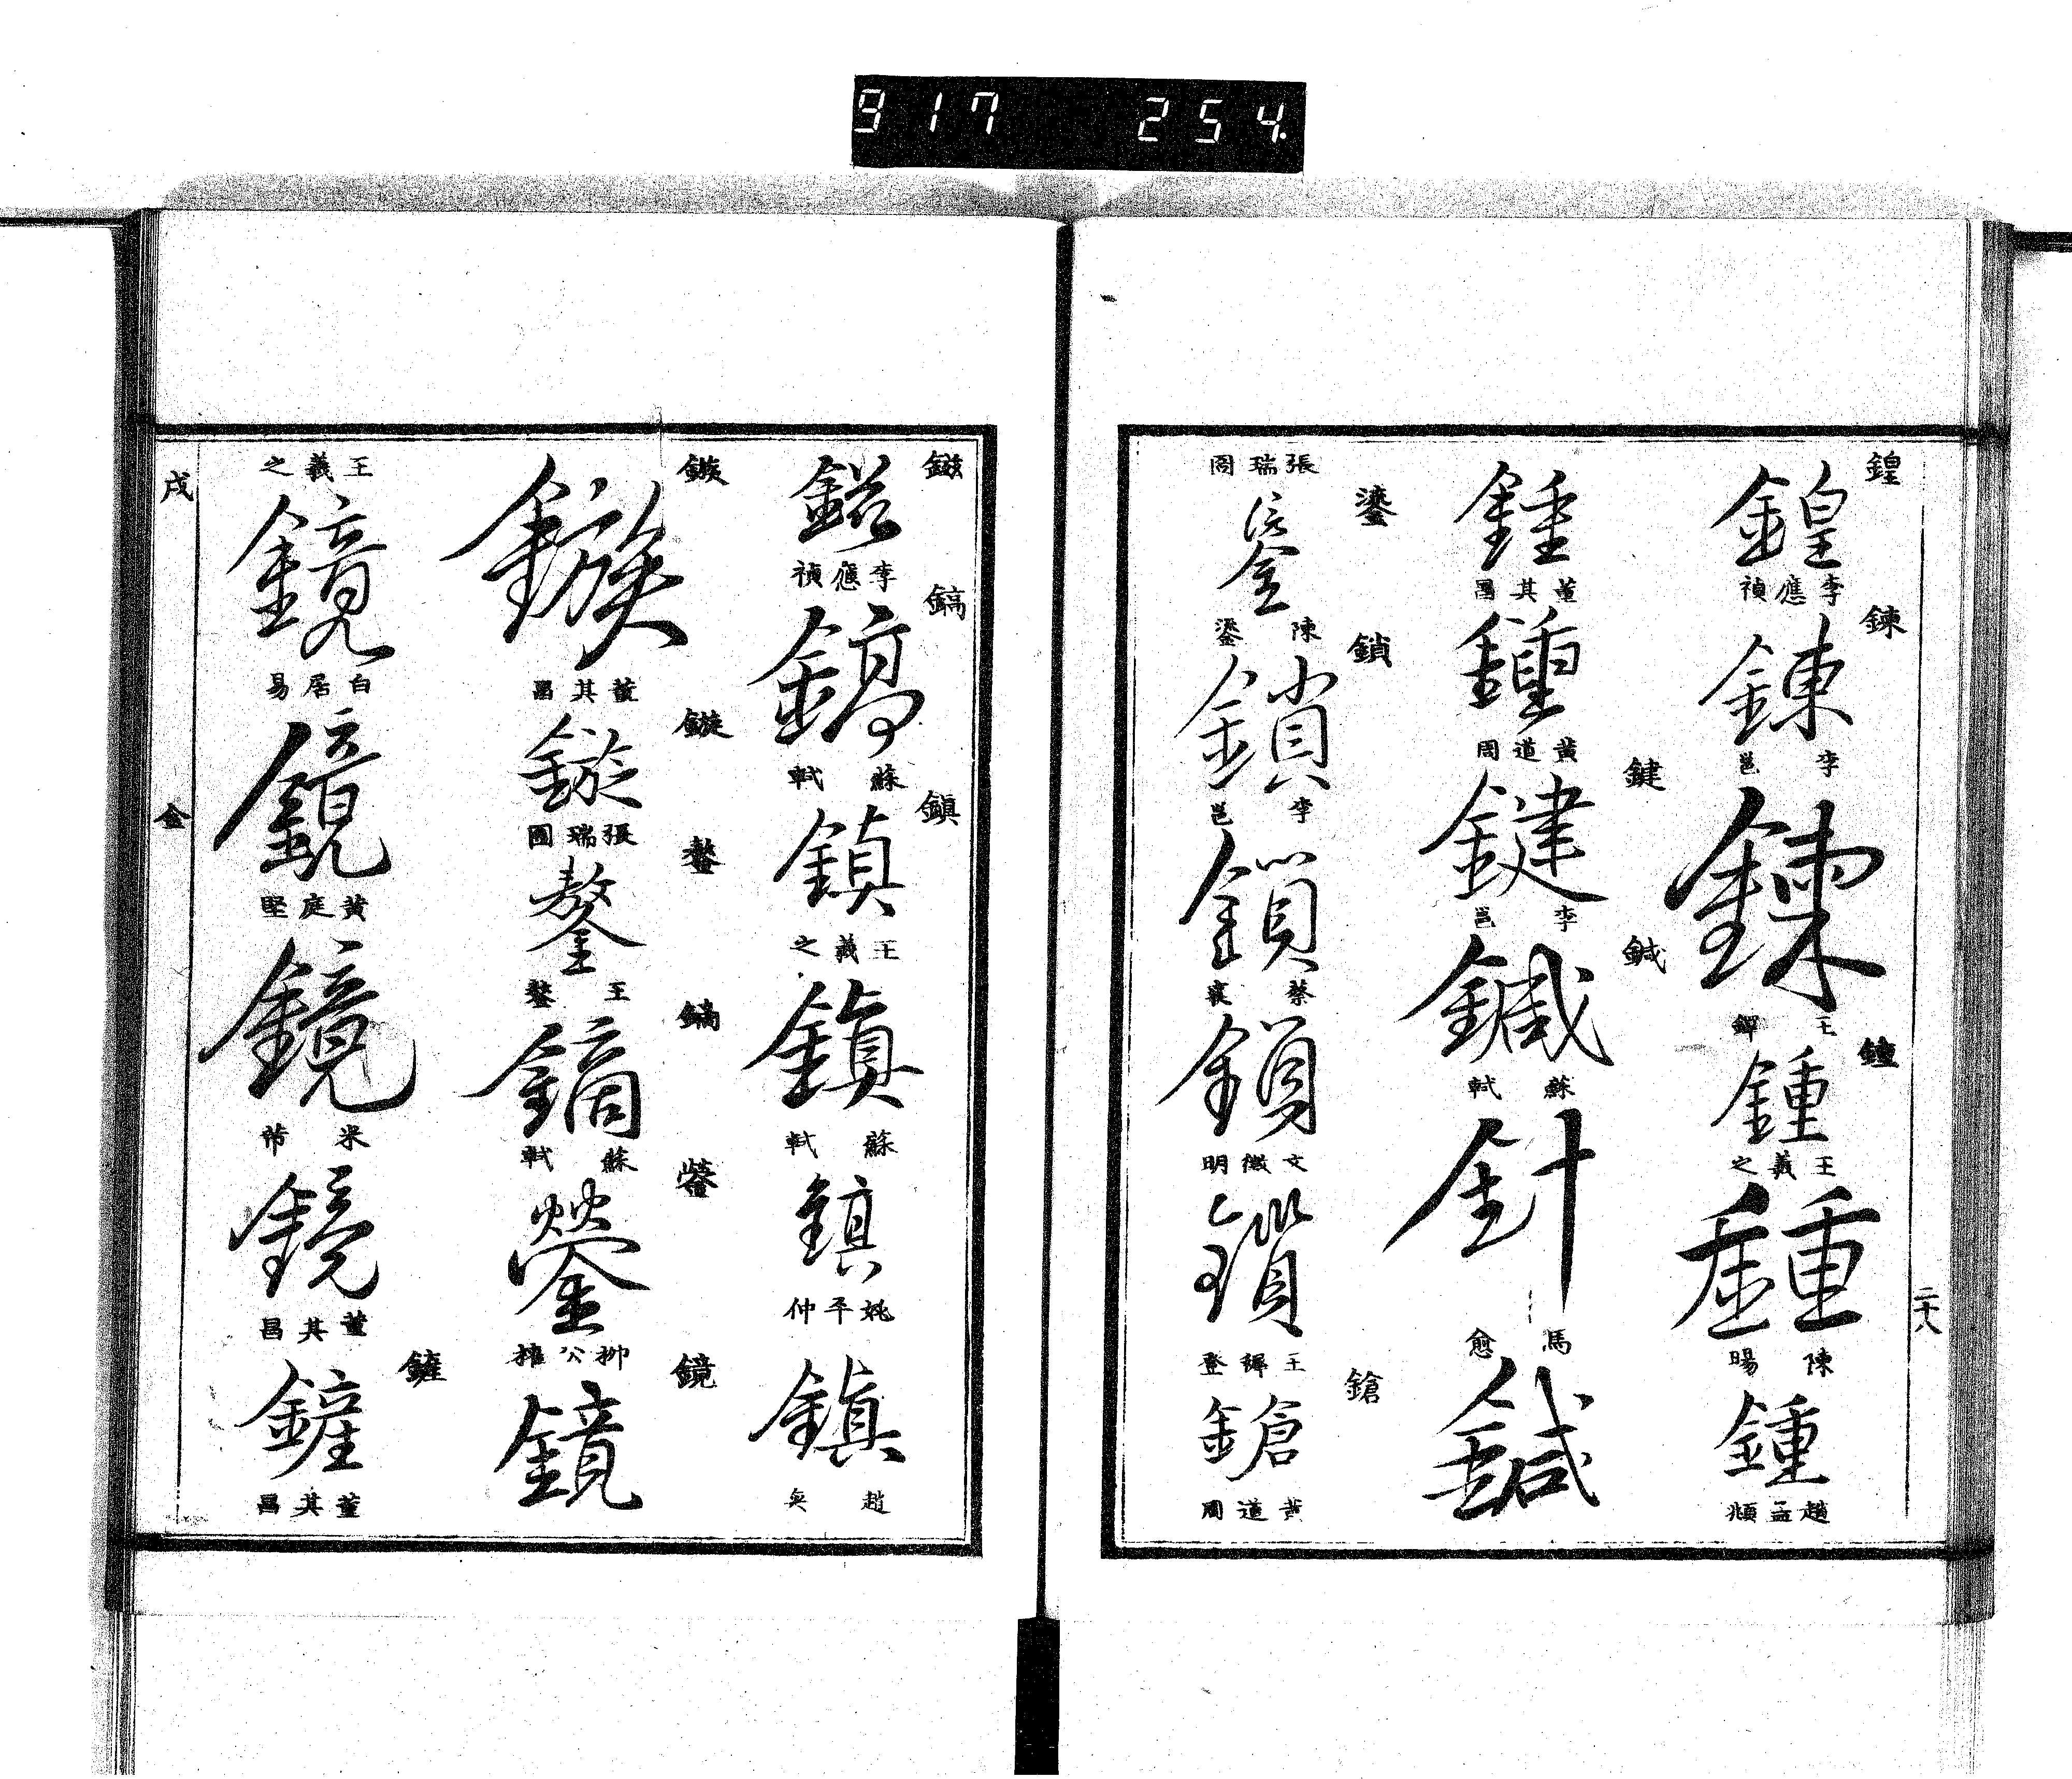 917 254.
鍠
鍠
李應禎
鍊
鍊
李邕
鍊
王鐸
鍾
鍾
王羲之
鍾
陳暘
鍾
趙孟頫
二十八
鍾
董其昌
鍾
黃道周
鍵
鍵
李邕
鍼
鍼
蘇軾
針
馬愈
鍼
張瑞啚
鎏
鎏
陳鎏
鎖
鎖
李邕
鎖
蔡襄
鎖
文徵明
鎖
王穉登
鎗
鎗
黃道周
鎡
鎡
李應禎
鎬
鎬
蘇軾
鎮
鎮
王羲之
鎮
蘇軾
鎮
姚平仲
鎮
趙奐
鏃
鏃
董其昌
鏇
鏇
張瑞圖
鏊
鏊
王鏊
鏑
鏑
蘇軾
鎣
柳公權
鏡
鏡
王羲之
鏡
白居易
鏡
黃庭堅
鏡
米芾
鏡
董其昌
鏟
鏟
董其昌
戌
金